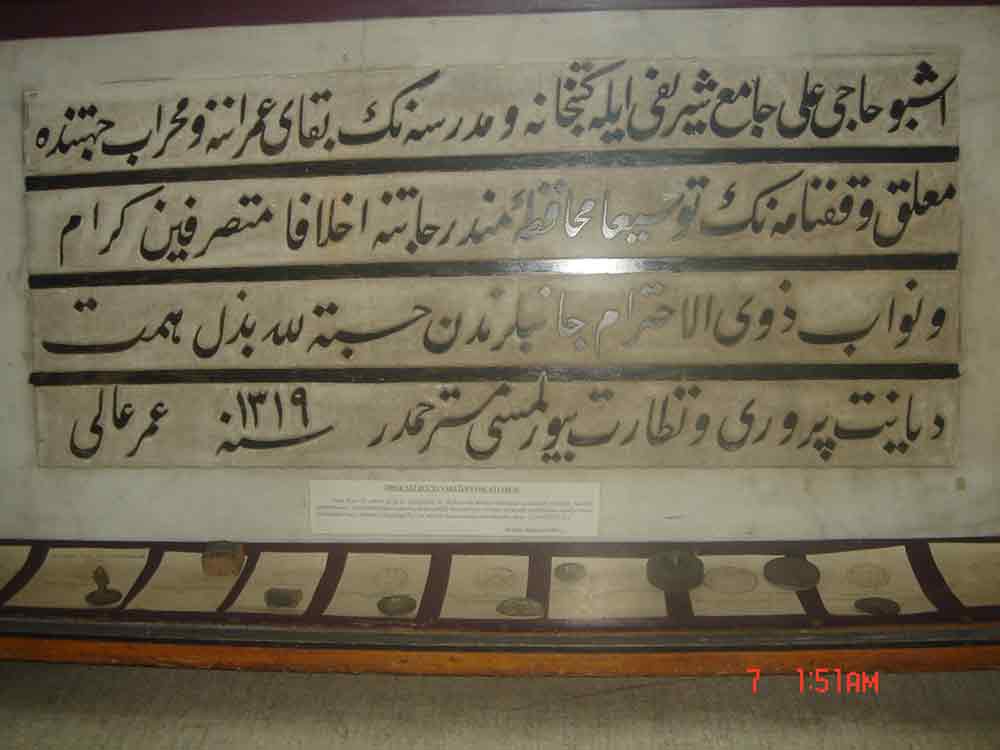 اشبو حاجی علی جامع شریفی ایله کتبخانه و مدرسه نك بقای عمراننه و محراب جهتنده
معلق وقفنامه نك توسیعا محافظۀ مندرجاتنه اخلافا متصرفین کرام
و نواب ذوی الاحترام جانبلرندن حسبة لله بذل همت
دیانت پروری و نظارت بیورلمسی مسترحمدر سنه ١٣١٩ عمر عالی
7 1:51AM